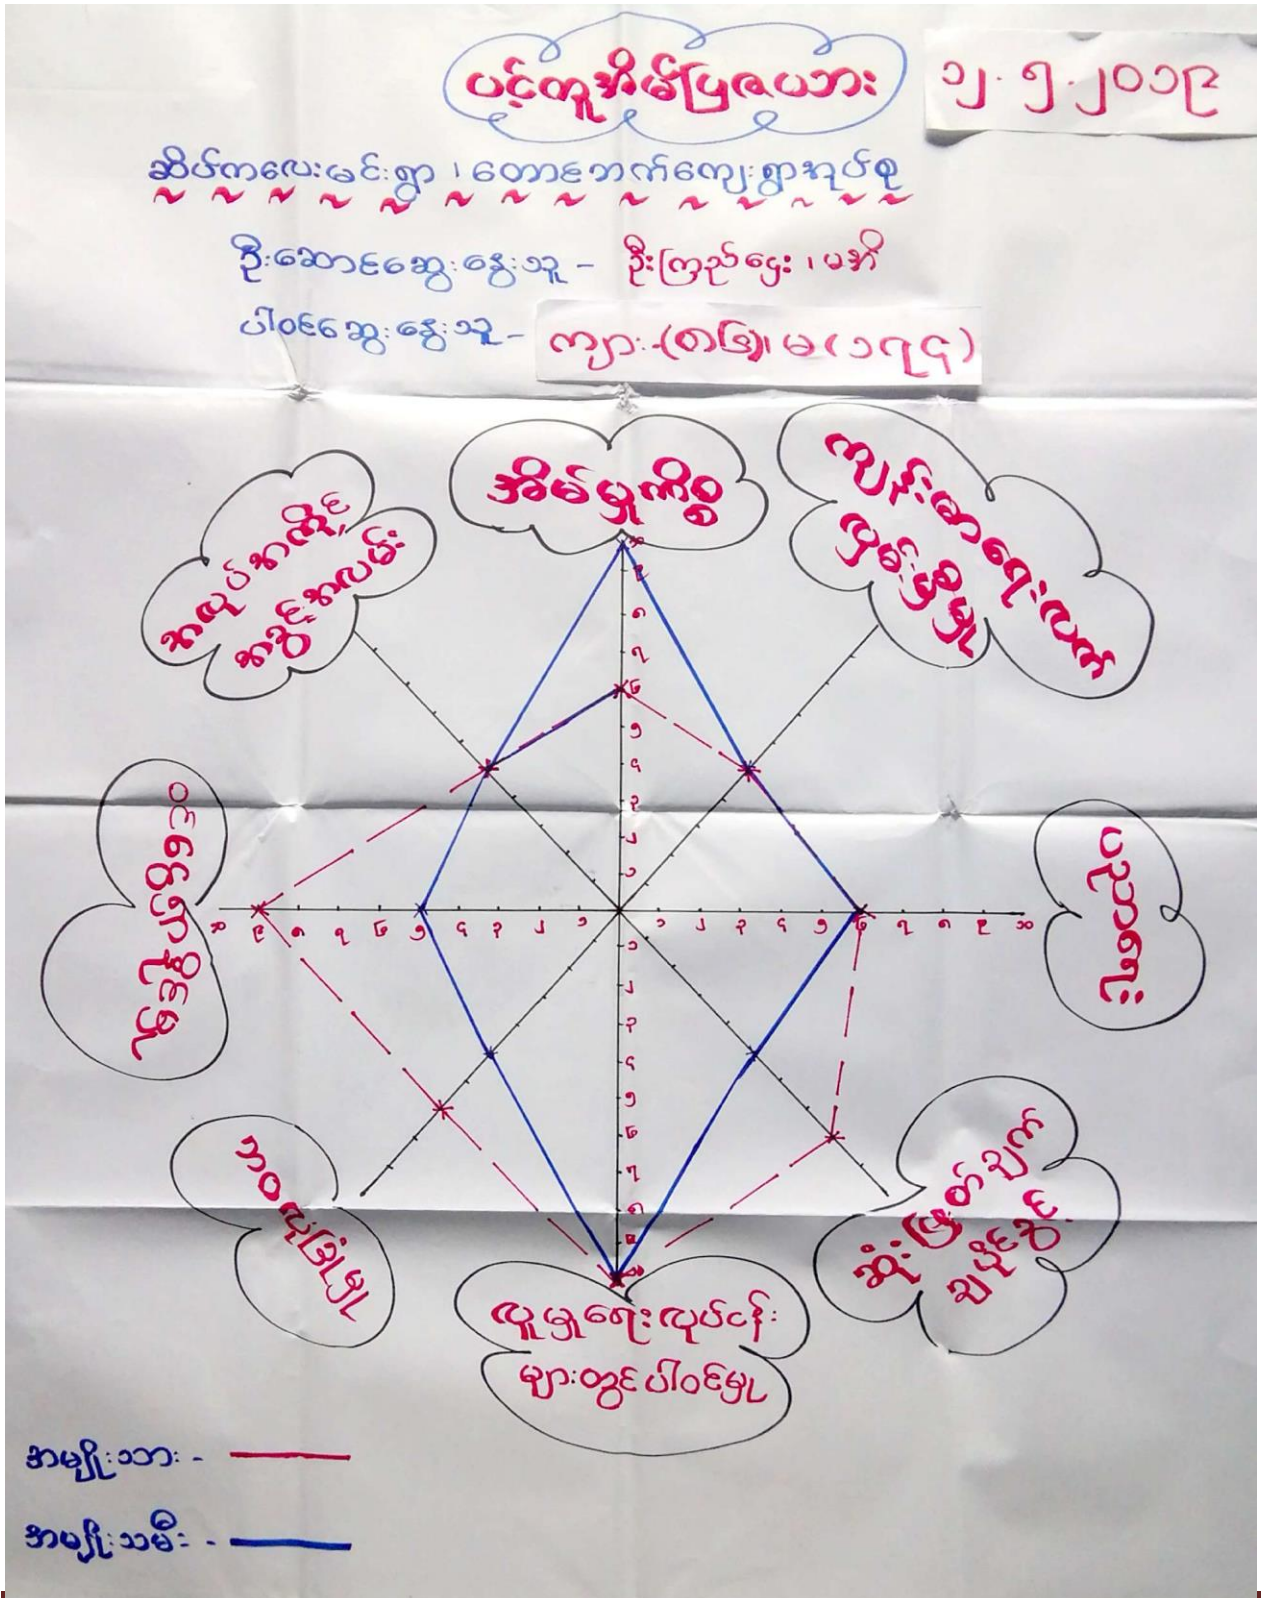 ပင့်ကူအိမ်ပြဇယား
၁၂.၅.၂၀၁၉
ဆိပ်ကလေးမင်းရွာ ၊ တောင်ဘက်ကျေးရွာအုပ်စု
ဦးဆောင်ဆွေးနွေးသူ - ဦးကြည်ဌေး ၊ မအိ
ပါဝင်ဆွေးနွေးသူ - ကျား-(၈၆)၊ မ (၁၇၄)
အိမ်မှုကိစ္စ
ကျန်းမာရေးလက်
လှမ်းမှီမှု
ပညာရေး
ဆုံးဖြတ်ချက်
ချပိုင်ခွင့်
လူမှုရေးလုပ်ငန်း
များတွင်ပါဝင်မှု
ဘဝလုံခြုံမှု
ဝင်ငွေရှာနိုင်မှု
အလုပ်အကိုင်
အခွင့်အလမ်း
၁၀
၉
၈
၇
၆
၅
၄
၃
၂
၁
၁၀ ၉ ၈ ၇ ၆ ၅ ၄ ၃ ၂ ၁ ၁ ၂ ၃ ၄ ၅ ၆ ၇ ၈ ၉ ၁၀
၁
၂
၃
၄
၅
၆
၇
၈
၉
၁၀
အမျိုးသား -
အမျိုးသမီး -